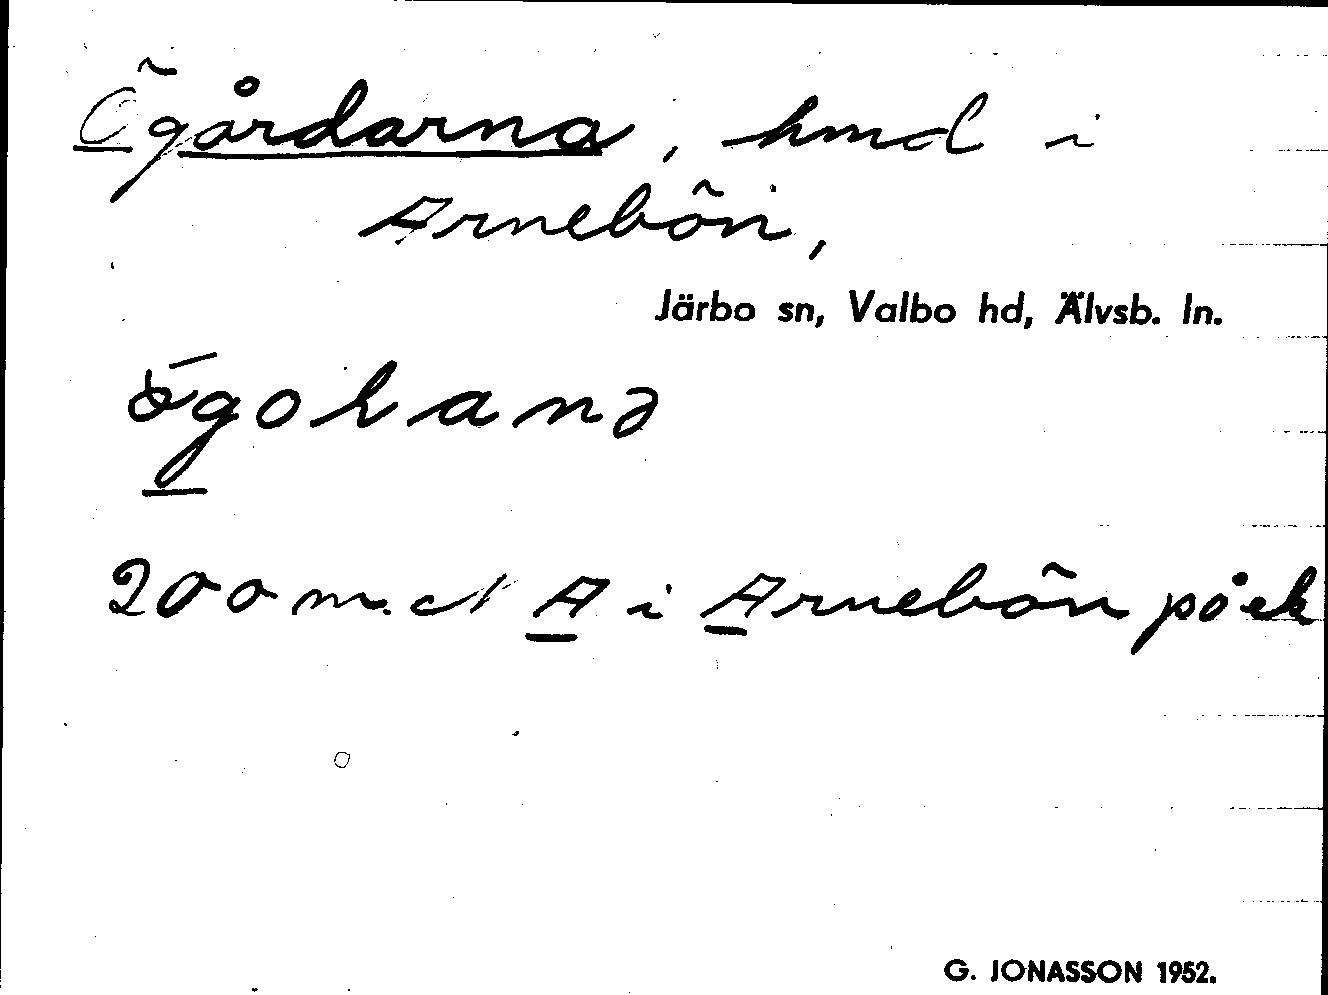 Ögårdarna, hmd i
Arnebön,
Järbo sn, Valbo hd, Älvsb. ln.
200 m. N A i Arnebön på ek
G. JONASSON 1952.